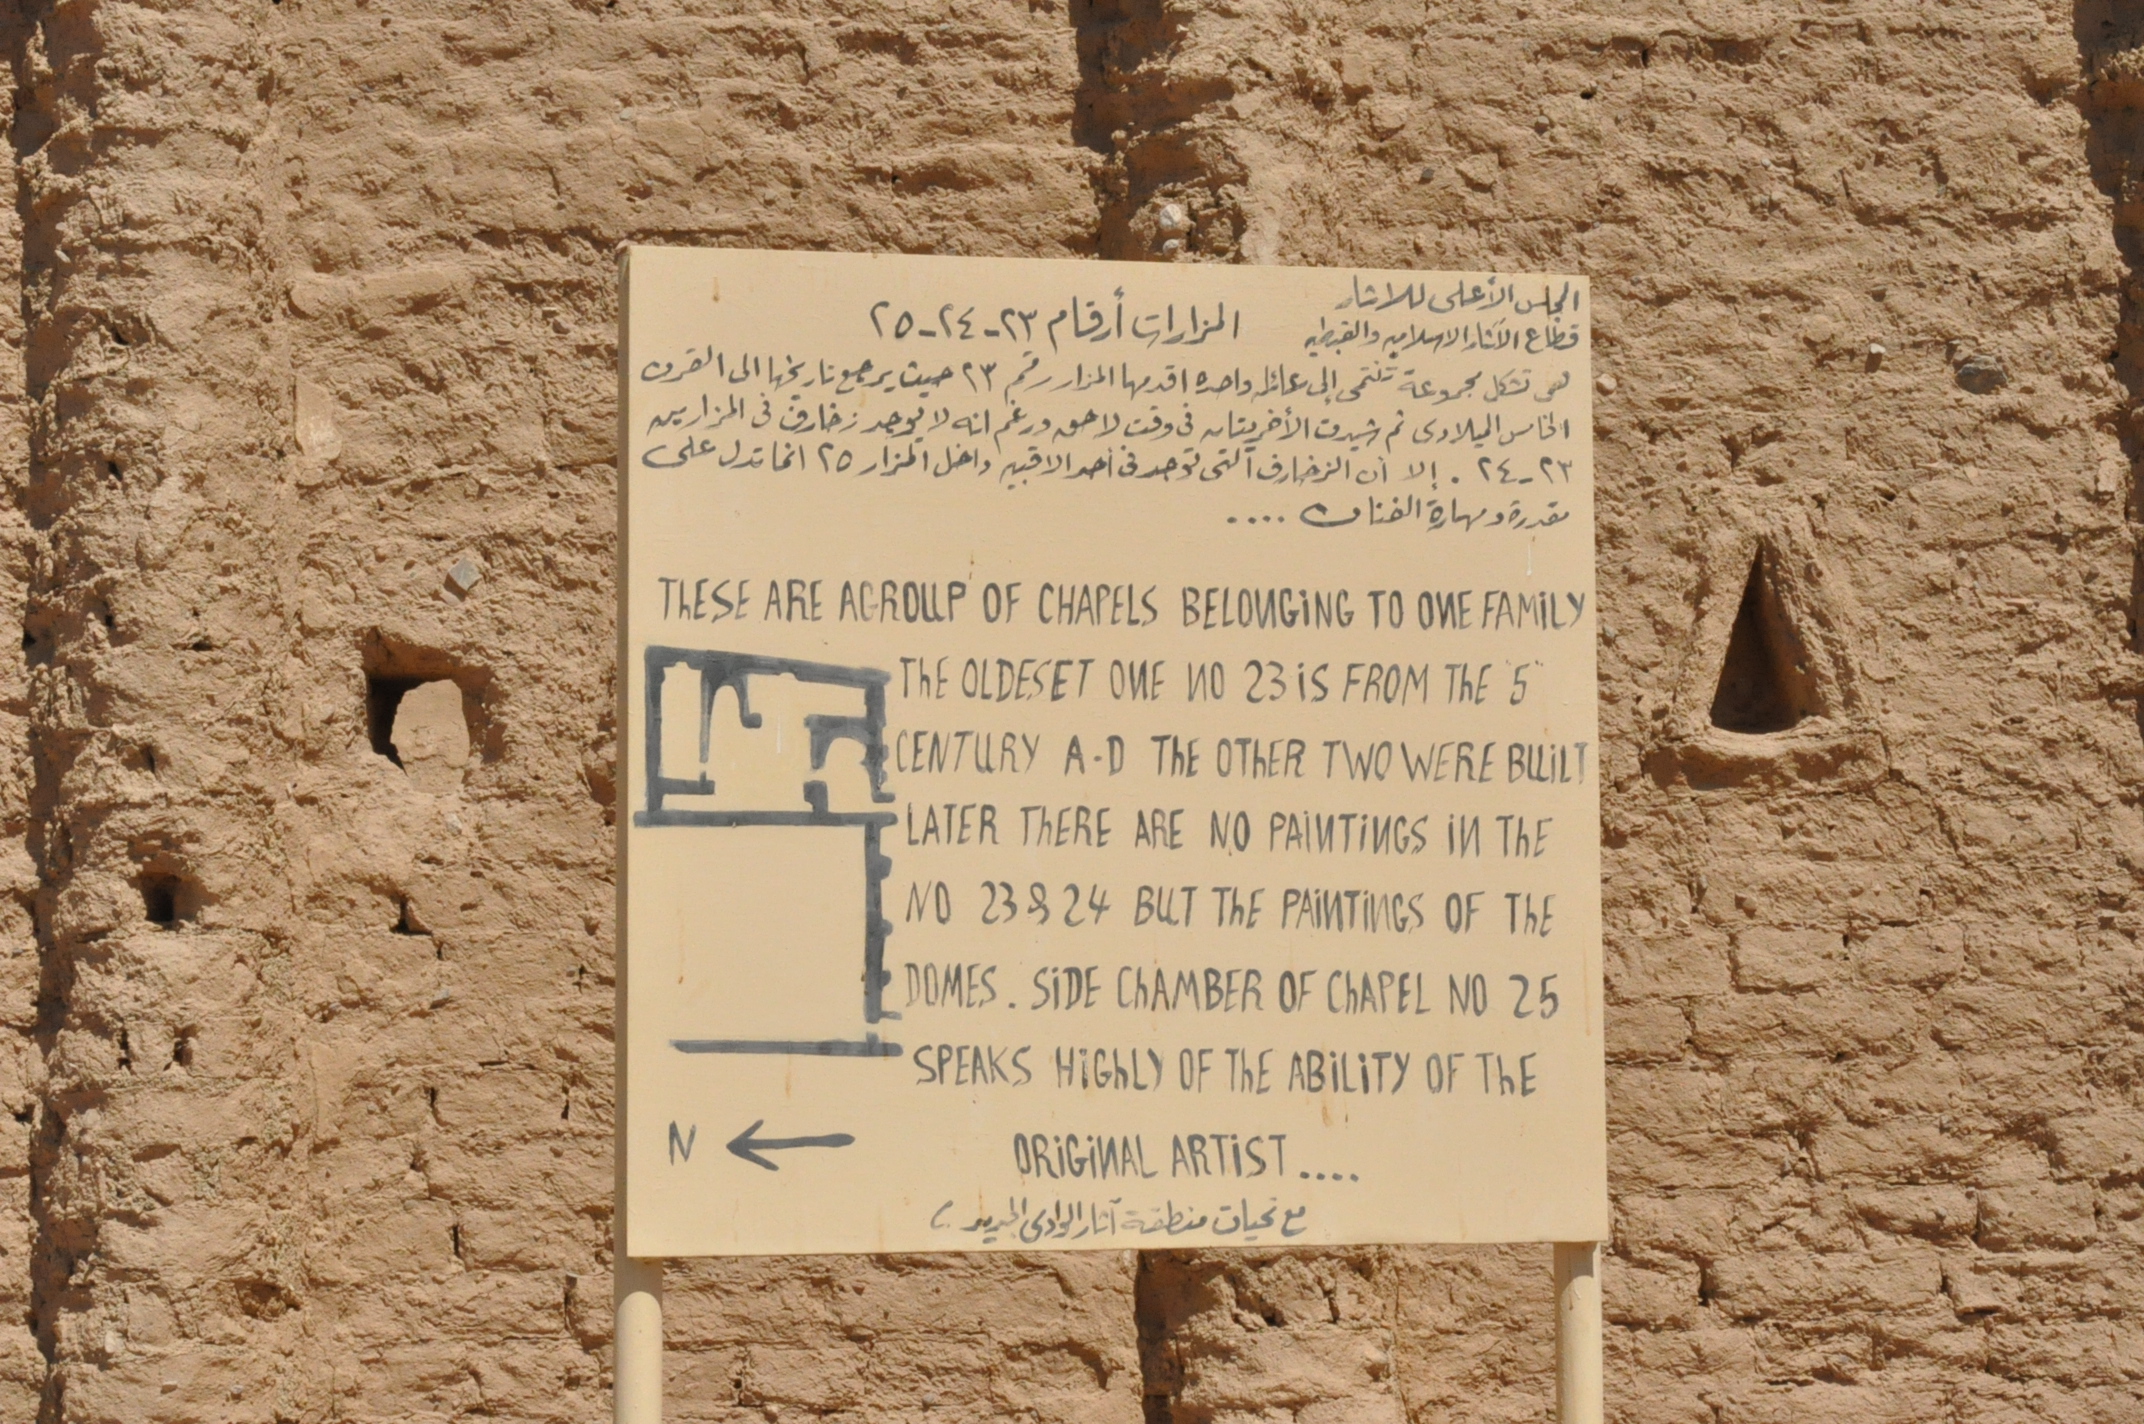 المجلس الأعلى للاثار
قطاع الآثار الاسلاميه والقبطيه
المزارات أرقام ٢٣-٢٤-٢٥
هى تشكل مجموعة تنتمى إلى عائله واحده اقدمها المزار رقم ٢٣ حيث يرجع تاريخها الى القرن
الخامس الميلادى ثم شيدت الأخريتان فى وقت لاحق ورغم انه لا يوجد زخارف فى المزارين
٢٣-٢٤ . إلا أن الزخارف التى توجد فى أحد الاقبيه داخل المزار ٢٥ انما تدل على
مقدرة ومهارة الفنان ....
THESE ARE AGROUP OF CHAPELS BELONGING TO ONE FAMILY
THE OLDESET ONE NO 23 IS FROM THE "5"
CENTURY A-D THE OTHER TWO WERE BUILT
LATER THERE ARE NO PAINTINGS IN THE
NO 23 & 24 BUT THE PAINTINGS OF THE
DOMES . SIDE CHAMBER OF CHAPEL NO 25
SPEAKS HIGHLY OF THE ABILITY OF THE
ORIGINAL ARTIST ....
N
مع تحيات منطقة آثار الوادى الجديد